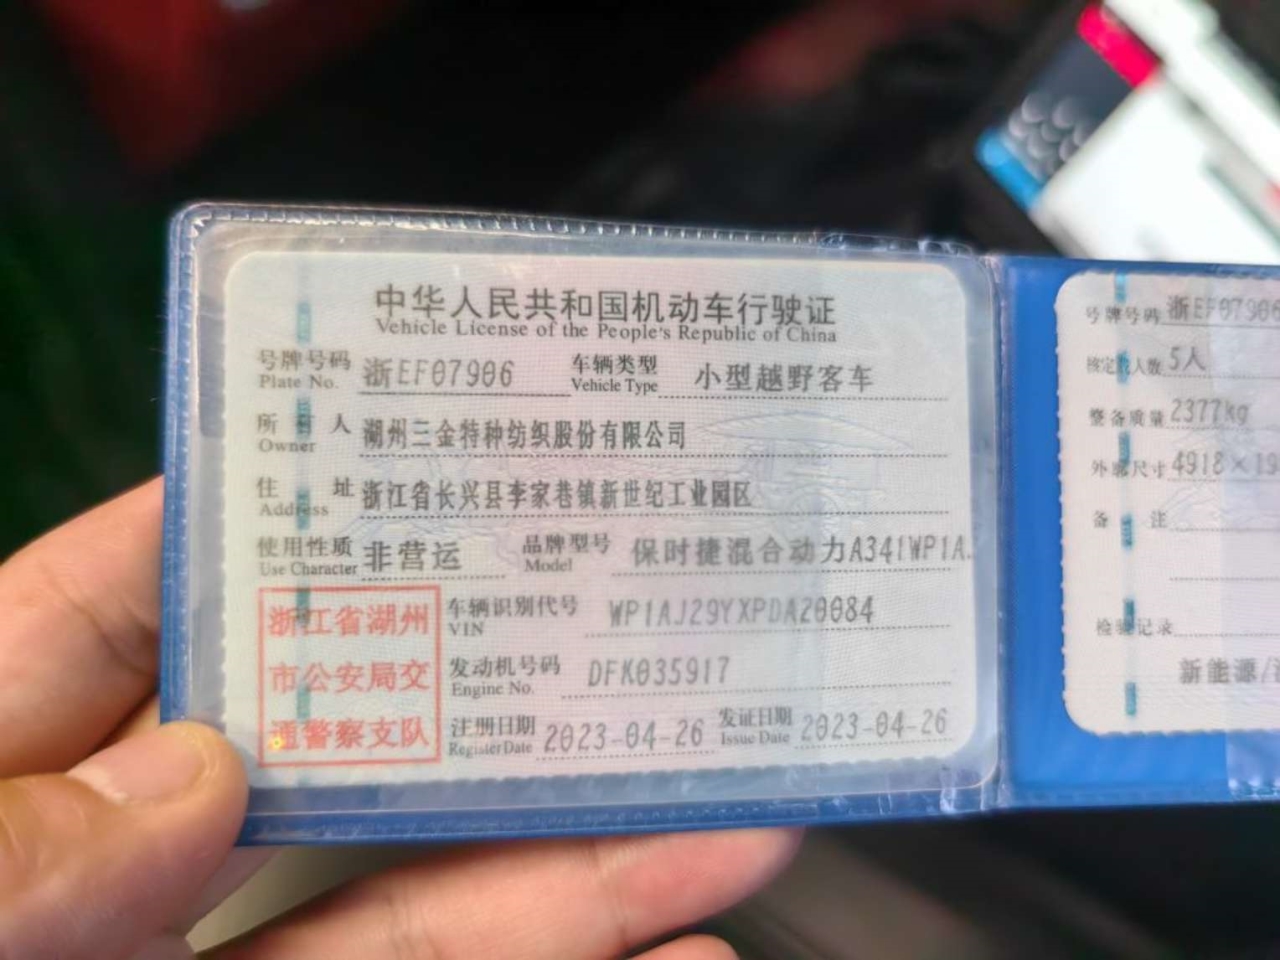 中华人民共和国机动车行驶证
Vehicle License of the People's Republic of China
号牌号码 浙EF07906 车辆类型 小型越野客车
Plate No. Vehicle Type
所有人 湖州三金特种纺织股份有限公司
Owner
住址 浙江省长兴县李家巷镇新世纪工业园区
Address
使用性质 非营运 品牌型号 保时捷混合动力A341WP1A
Use Character Model
浙江省湖州
市公安局交
通警察支队
车辆识别代号 WP1AJ29YXPDA20084
VIN
发动机号码 DFK035917
Engine No.
注册日期 2023-04-26 发证日期 2023-04-26
Register Date Issue Date
号牌号码 浙EF07906
核定载人数 5人
整备质量 2377kg
外廓尺寸 4918×19
备注
检验记录
新能源/